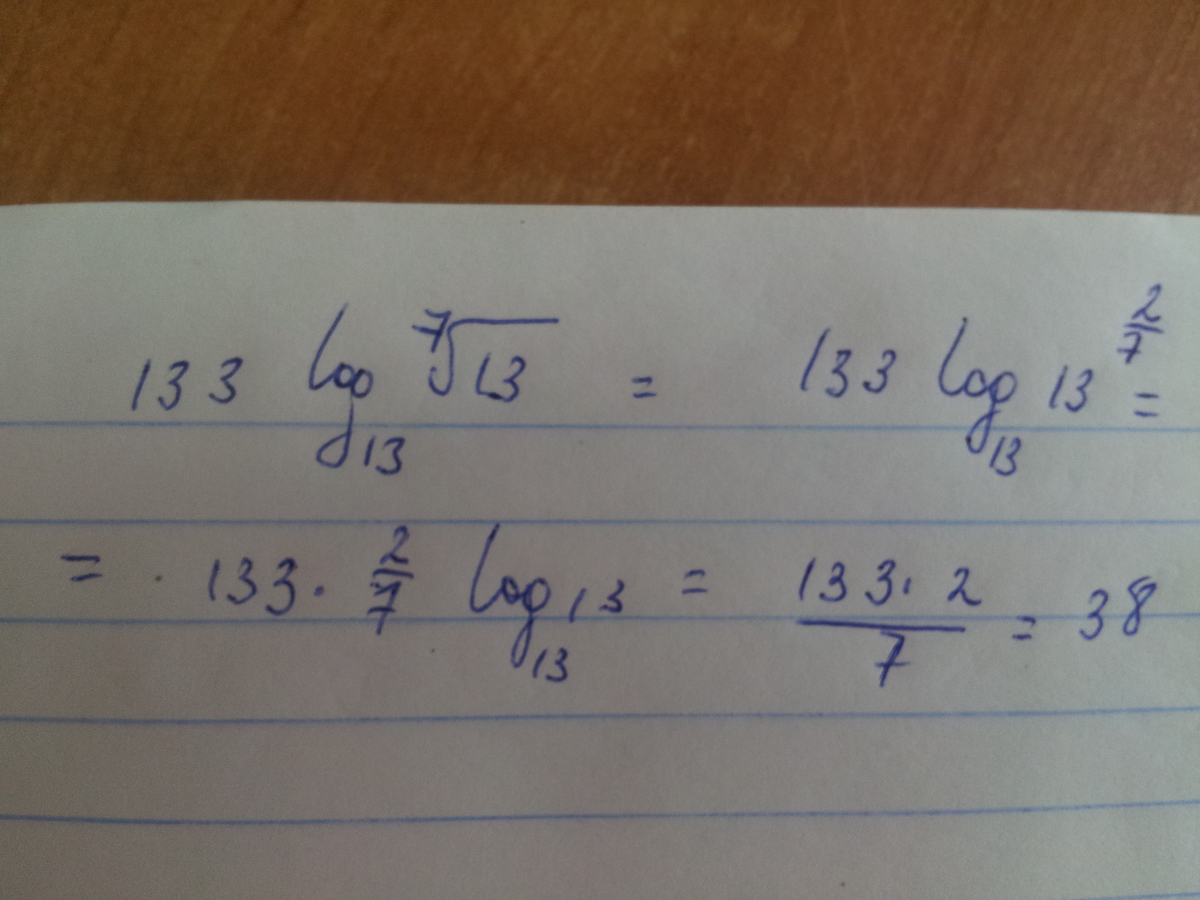 133 log₁₃ ⁷√13 = 133 log₁₃ 13^(2/7) =
= 133 · 2/7 log₁₃ 13 = (133 · 2)/7 = 38